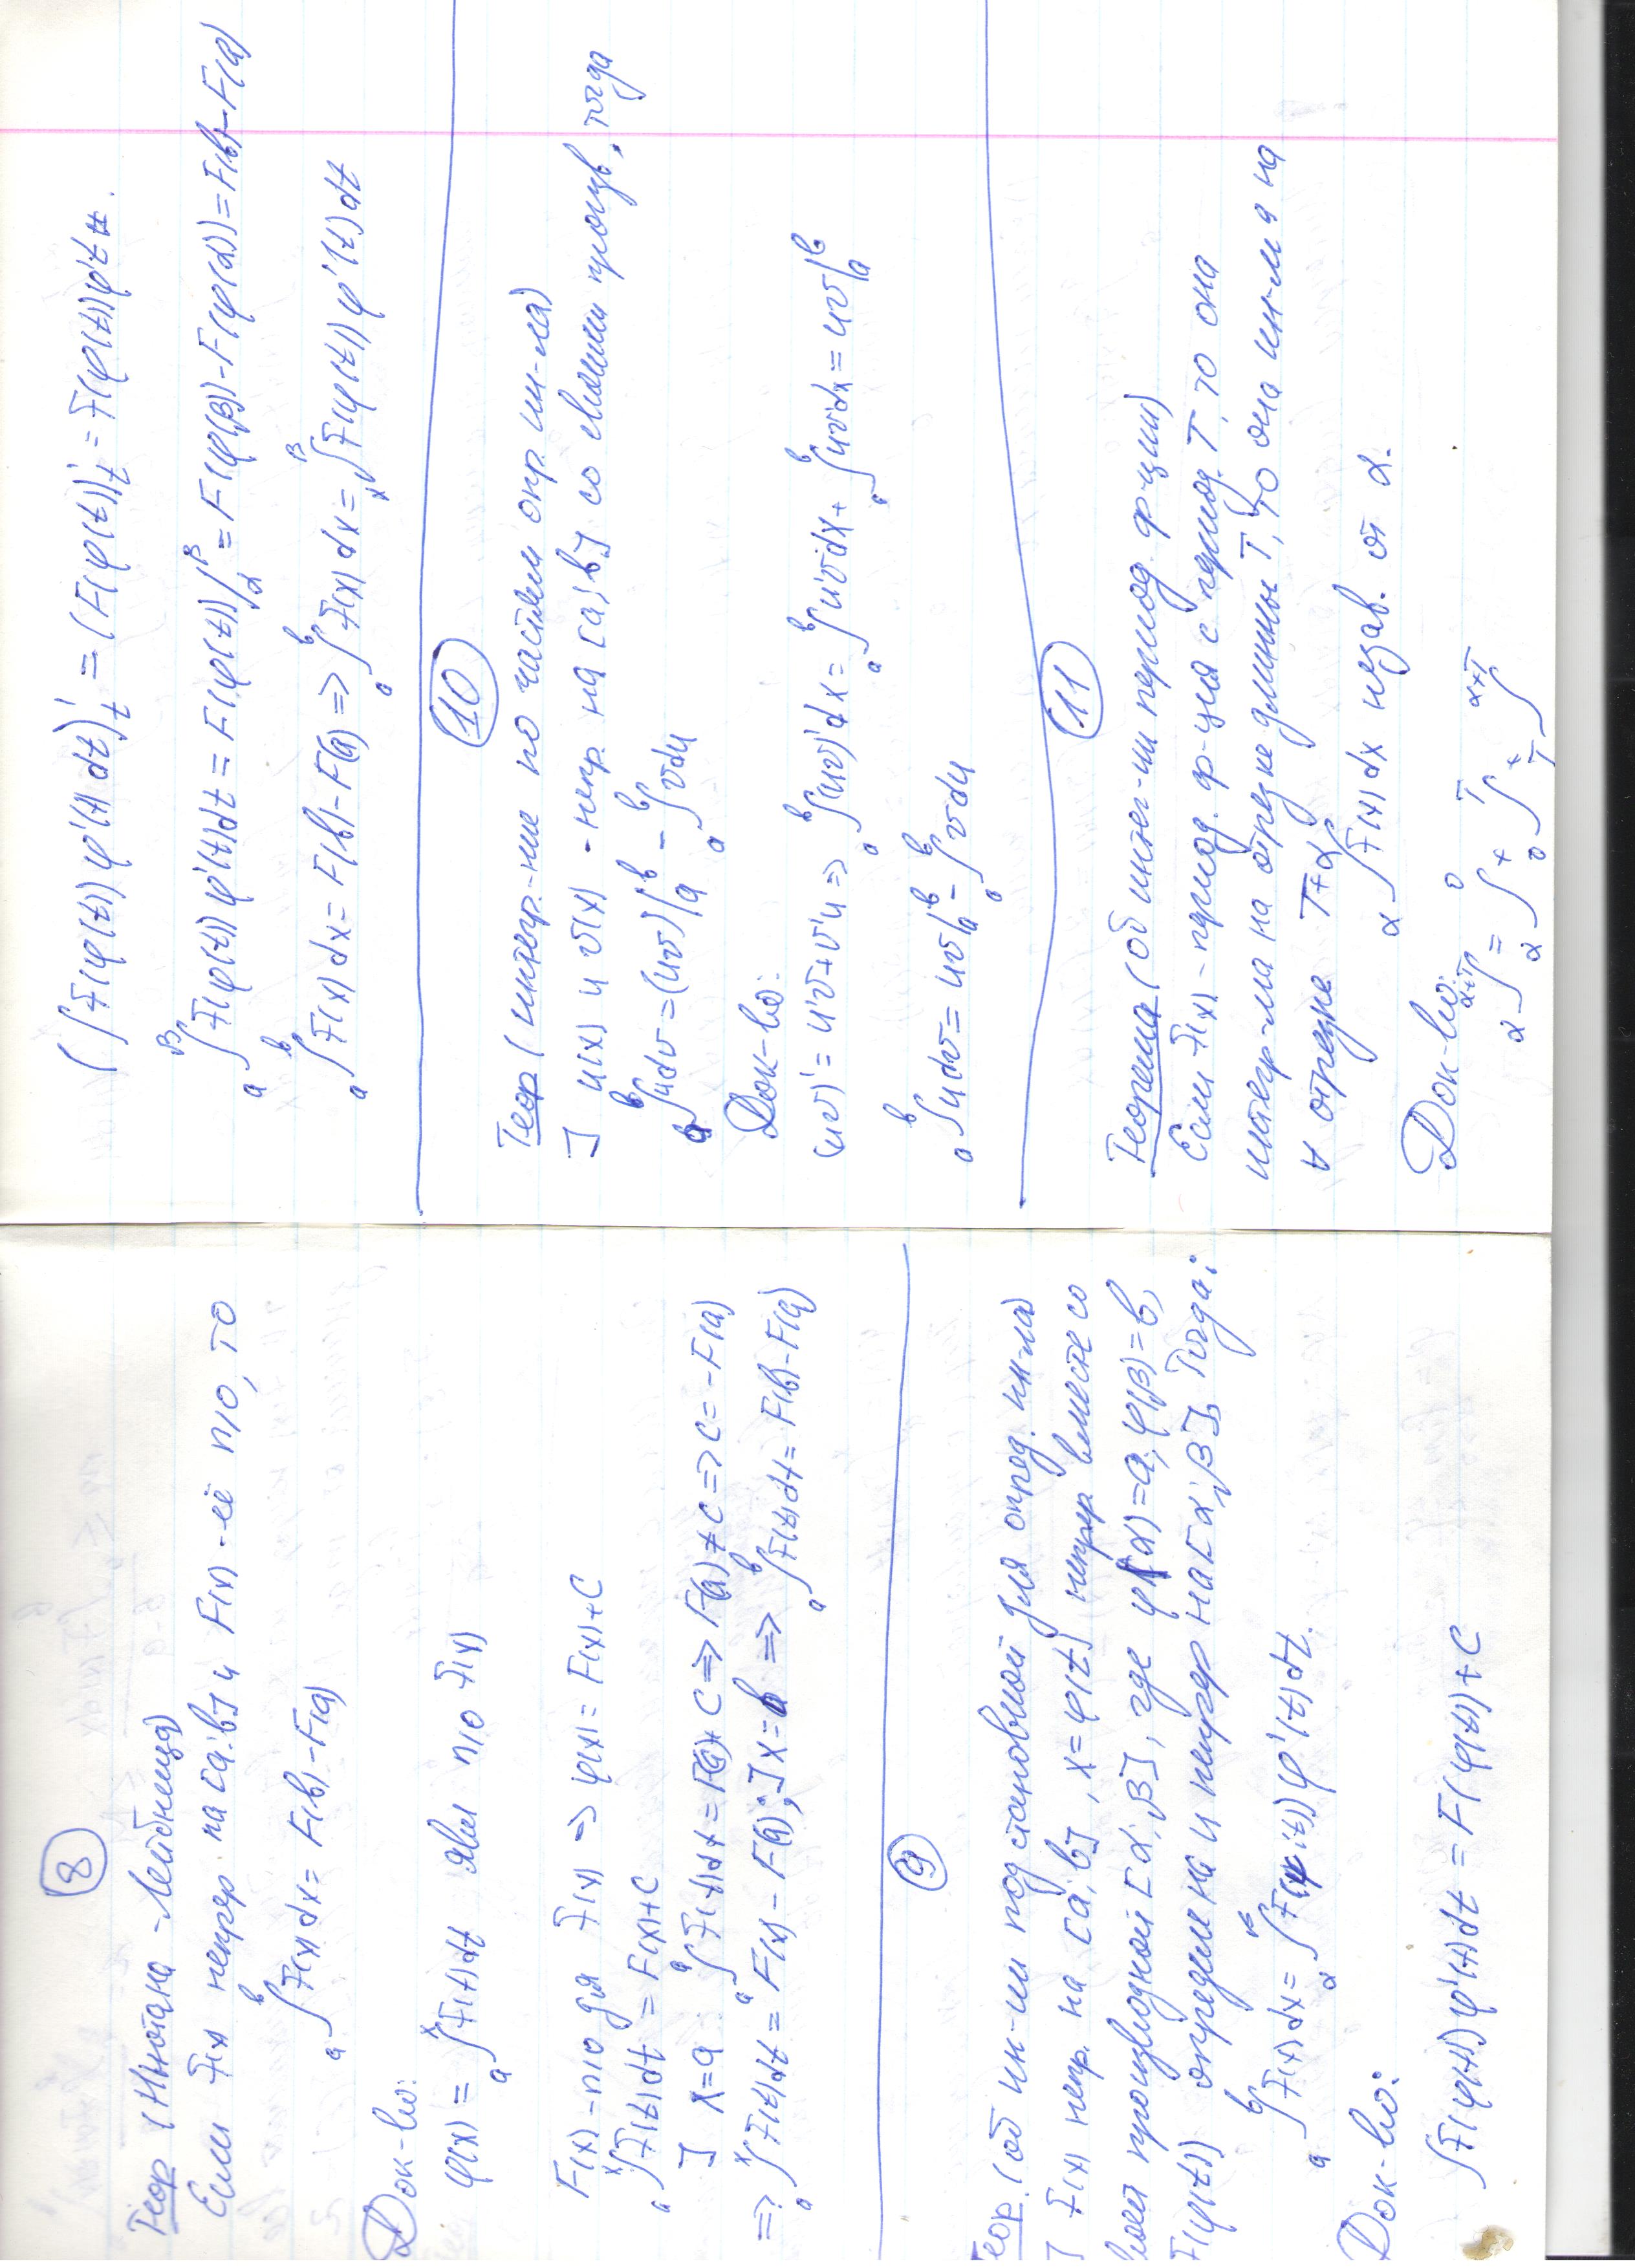 8
Теор (Ньютона-Лейбница)
Если f(x) непрер на [a;b] и F(x) - её п/о, то
a∫b f(x)dx = F(b)-F(a)
Док-во:
φ(x) = a∫x f(t)dt явл п/о f(x)
F(x) - п/о для f(x) => φ(x) = F(x)+C
a∫x f(t)dt = F(x)+C
] x=a: a∫a f(t)dt = F(a)+C => F(a)+C => C = -F(a)
=> a∫x f(t)dt = F(x) - F(a); ] x=b => a∫b f(t)dt = F(b)-F(a)
9
Теор. (об ин-ии подстановкой для опред. ин-ла)
] f(x) непр. на [a;b], x=φ(t) непрер вместе со
своей производной [α;β], где φ(α)=a, φ(β)=b,
f(φ(t)) определена и непрер на [α;β]. Тогда:
a∫b f(x)dx = α∫β f(φ(t))φ'(t)dt.
Док-во:
∫f(φ(t))φ'(t)dt = F(φ(t))+C
(∫f(φ(t))φ'(t)dt)'t = (F(φ(t))'t = f(φ(t))φ't
a∫β f(φ(t))φ'(t)dt = F(φ(t))|αβ = F(φ(β))-F(φ(α)) = F(b)-F(a)
a∫b f(x)dx = F(b)-F(a) => a∫b f(x)dx = α∫β f(φ(t))φ'(t)dt
10
Теор (интегр-ние по частям опр. ин-ла)
] u(x) и v(x) - непр. на [a;b] со своими произв., тогда
a∫b udv = (uv)|ab - a∫b vdu
Док-во:
(uv)' = u'v+v'u => a∫b (uv)'dx = a∫b u'vdx + a∫b uv'dx = uv|ab
a∫b udv = uv|ab - a∫b vdu
11
Теорема (об интег-ии период. ф-ции)
Если f(x) - период. ф-ция с период. T, то она
интегр-ма на отрезке длинны T, то она ин-ма на
∀ отрезке T+α α∫ f(x)dx незав. от α.
Док-во:
α∫α+T = α∫0 + 0∫T + T∫α+T